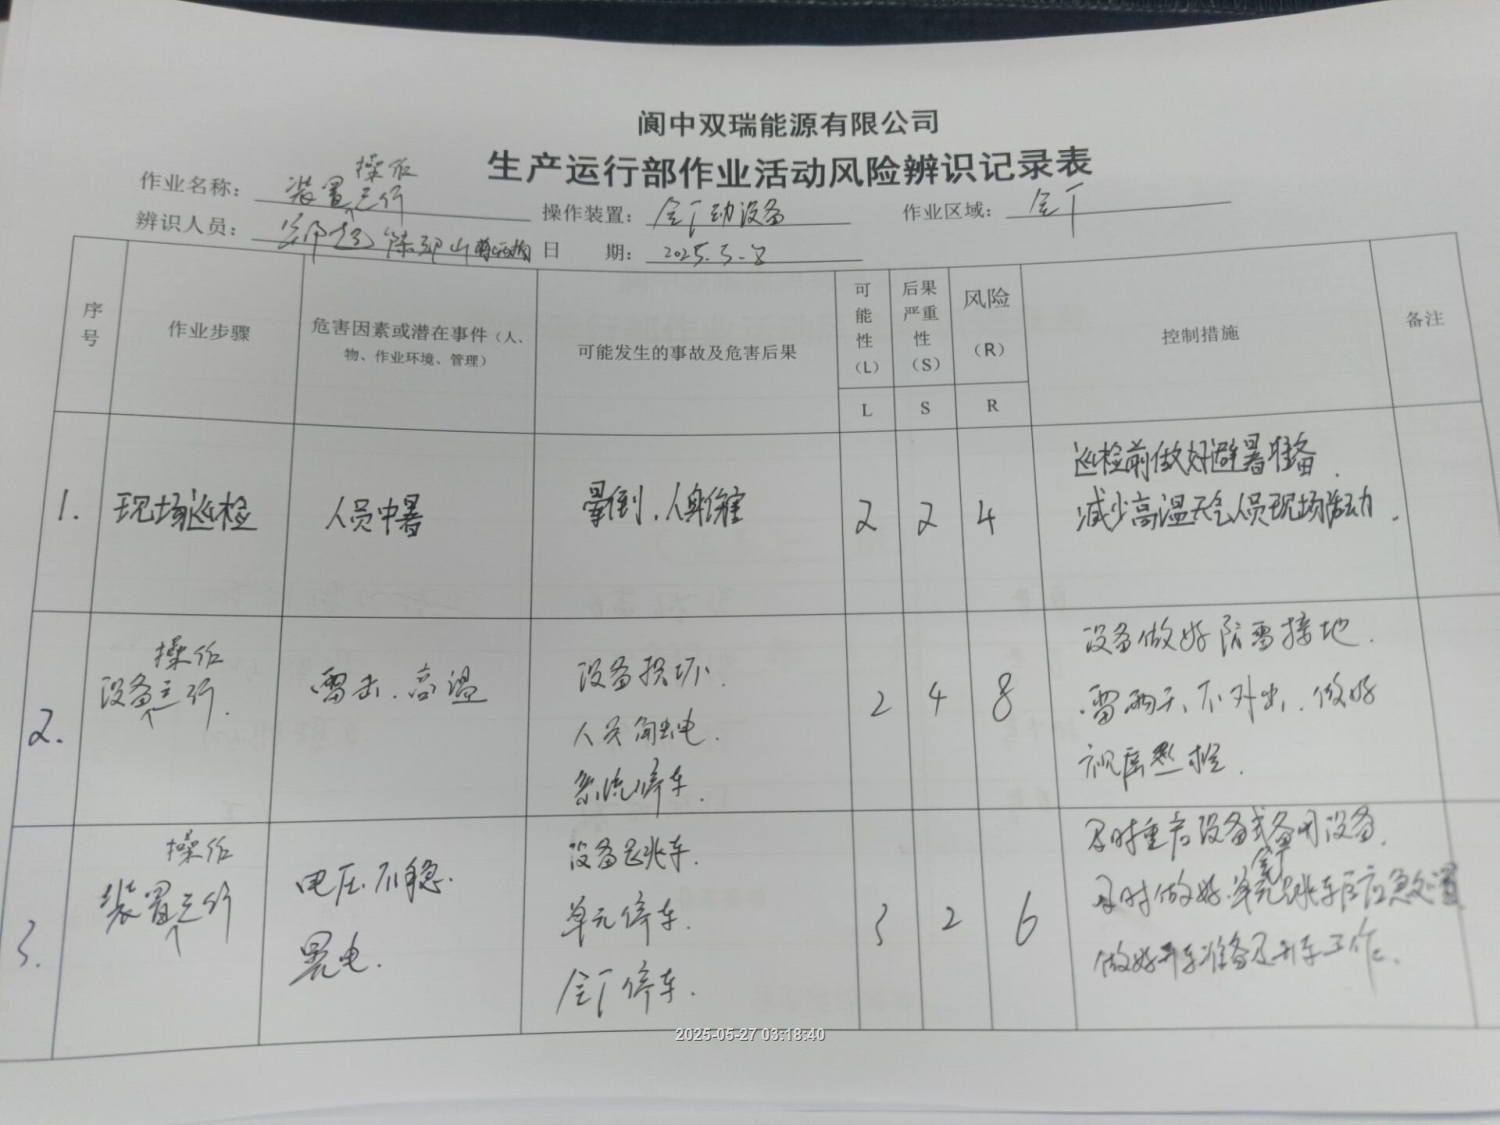 阆中双瑞能源有限公司
生产运行部作业活动风险辨识记录表
作业名称： 装置操作运行
操作装置： 全厂动设备 作业区域： 全厂
辨识人员： 郑超 陈邵山
日 期： 2025.5-8
序号 作业步骤 危害因素或潜在事件（人、物、作业环境、管理） 可能发生的事故及危害后果 可能性（L） 后果严重性（S） 风险（R） 控制措施 备注
L S R
1. 现场巡检 人员中暑 晕倒、人身伤害 2 2 4 巡检前做好避暑准备.
减少高温天气人员现场活动.
2. 设备操作运行. 雷击、高温 设备损坏. 2 4 8 设备做好防雷接地.
人员触电. 雷雨天、不外出、做好
系统停车. 巡检.
3. 装置操作运行 电压不稳. 晃电. 设备跳车. 3 2 6 及时重启设备或备用设备.
单元停车. 及时做好单元跳车后应急处置
全厂停车. 做好开车准备及开车工作.
2025-05-27 03:18:40